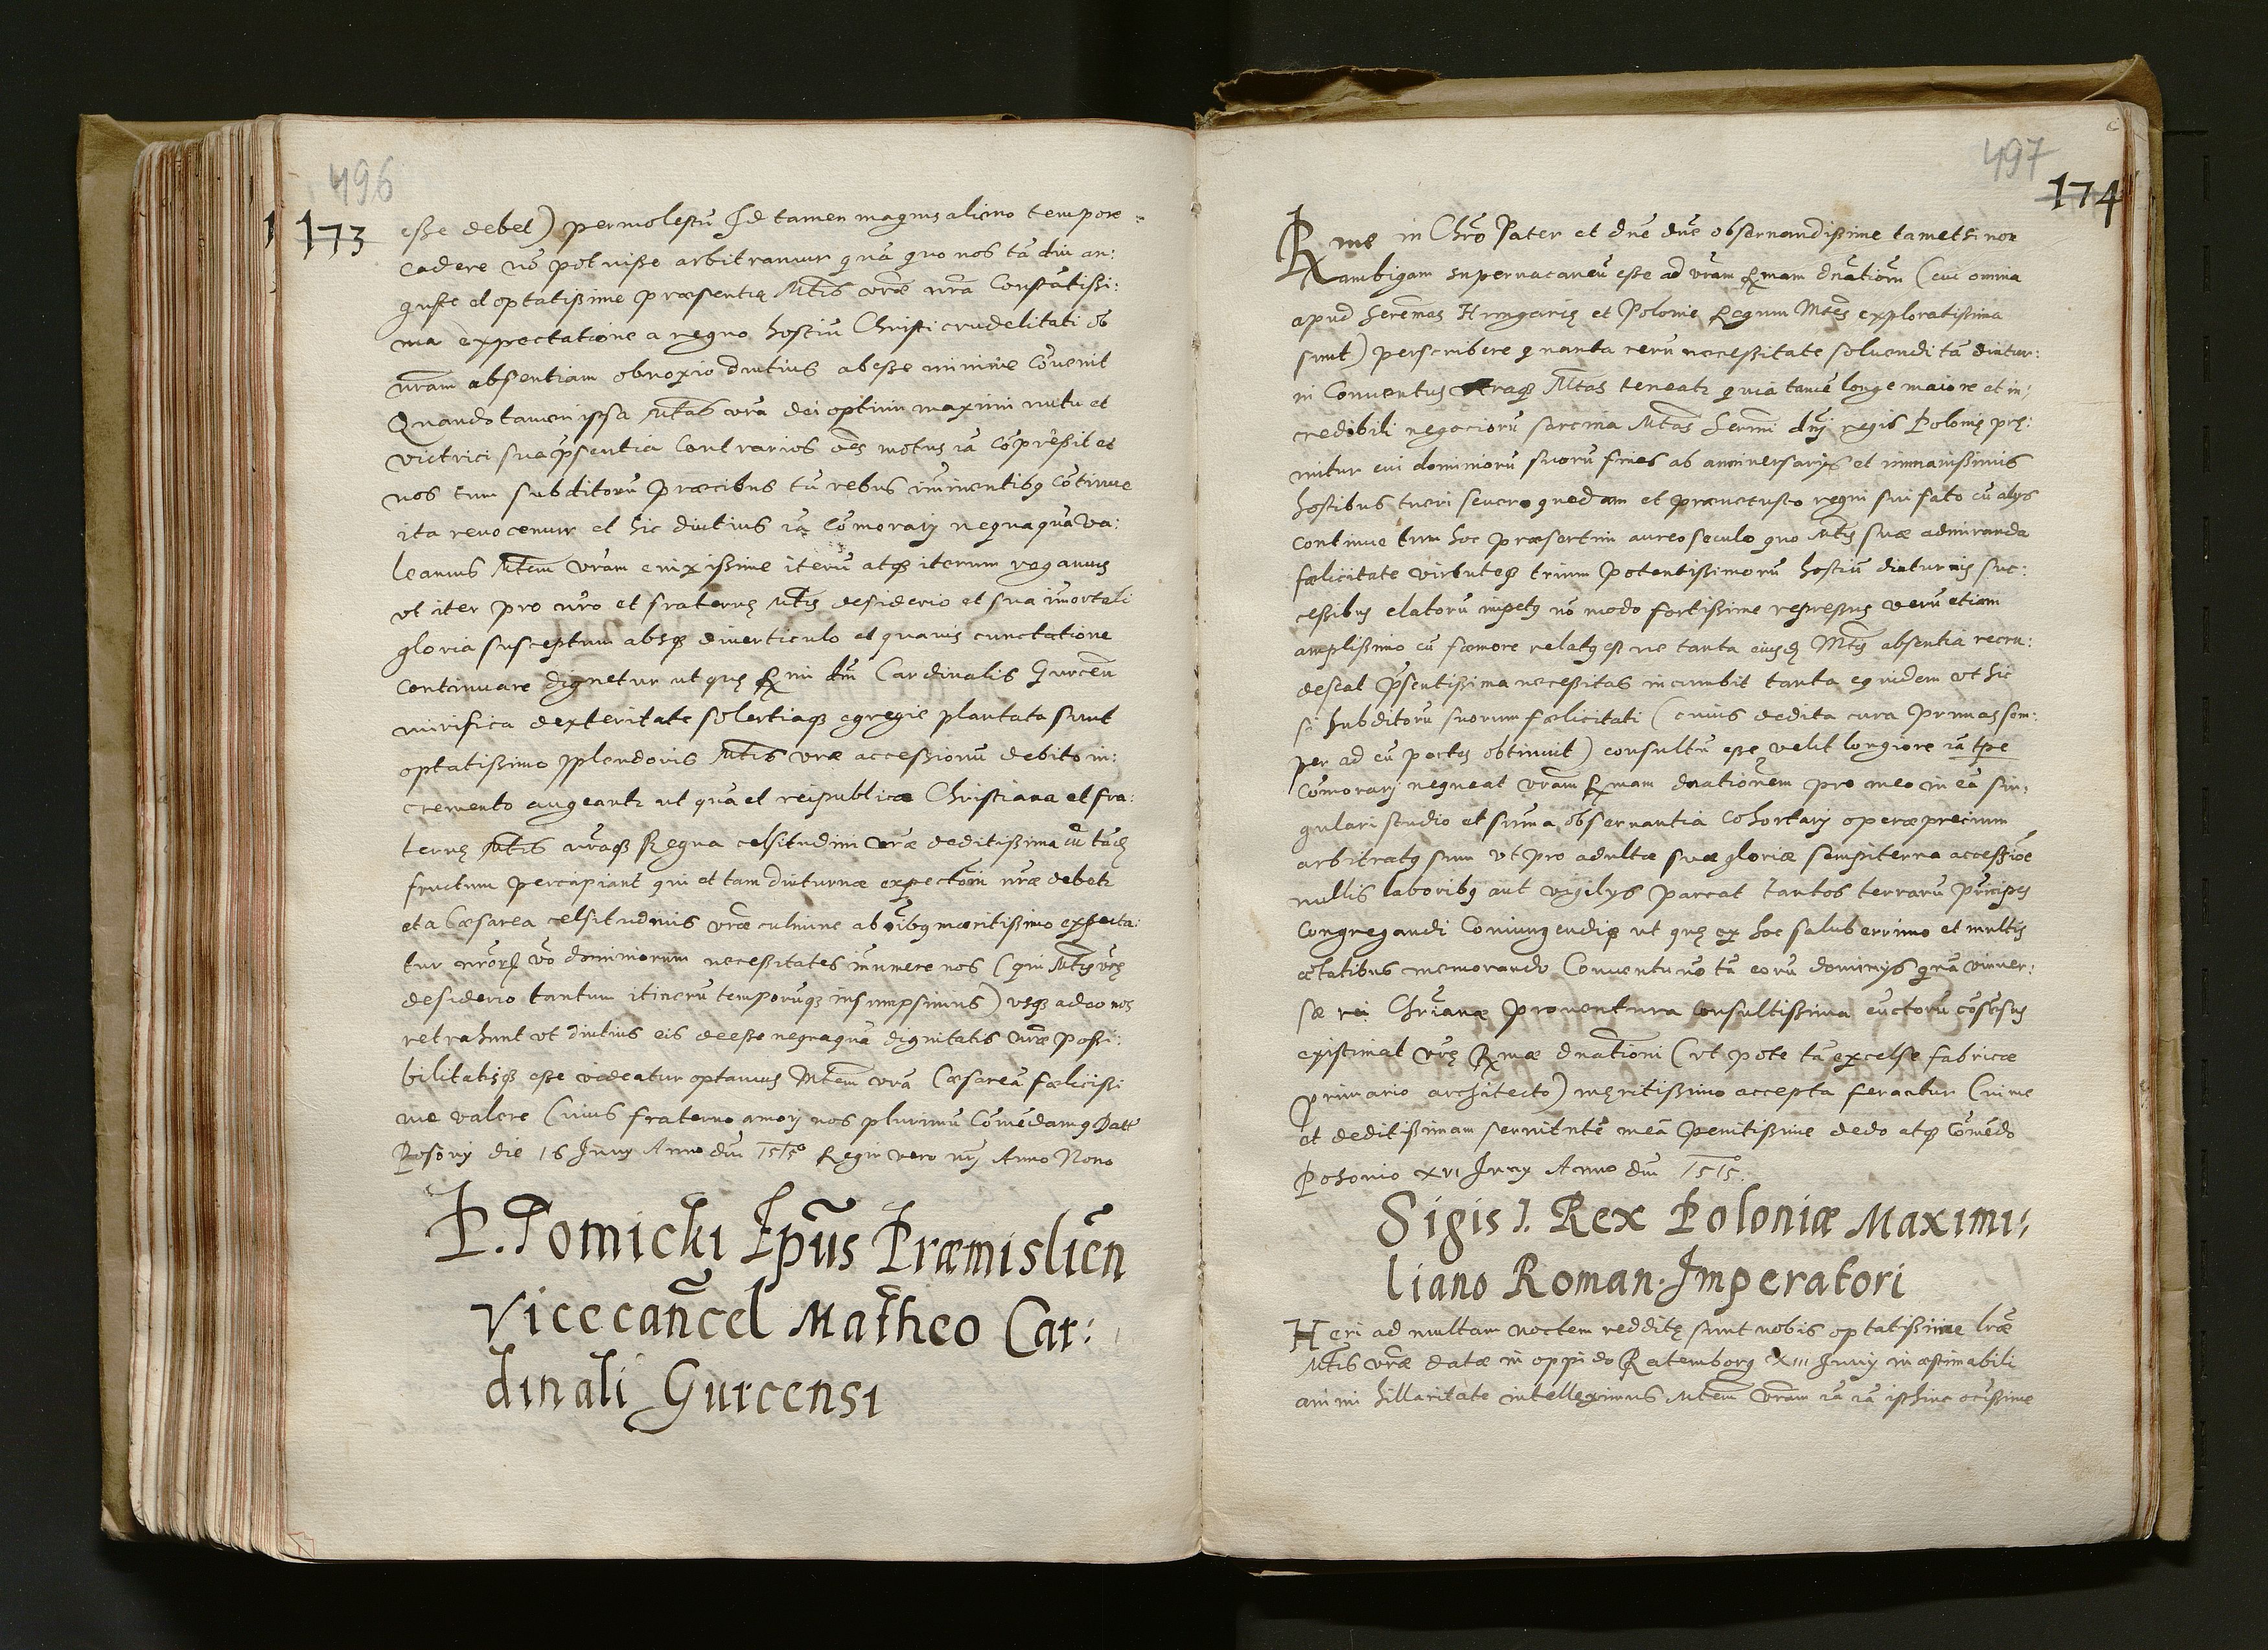 496
173
esse debet) permolestū Id tamen magnis alieno tempore
cadere nō potuisse arbitramur quā quo nos tā diu an:
guste et optatissime præsentię Mtis vræ nrā Constātissi:
ma expectatione a regno hostiū Christi crudelitati ob
nrām absentiam obnoxio diutius abesse minime Cōvenit
Quando tamen ipsa Mtas vrā dei optimi maximi nutu et
victrici sua pn̄sentia Contrarios oēs motus iā Cōpressit et
nos tum subditorū præcibus tū rebus im̄inentibq Cōtinue
ita revocemur et hic diutius iā Cōmorarij nequaquā va:
leamus Mtem vrām enixissime iterū atqz iterum rogamus
vt iter pro nrō et fraternę Mtis desiderio et sua im̄ortali
gloria susceptum absqz diverticulo et quavis cunctatione
Continuare dignetur ut quę Rmi dni Cardinalis Gurceñ
mirifica dexteritate solertiaqz egregie plantata sunt
optatissimo splendoris Mtis vræ accessionū debito in:
cremento augeantr ut quā et reipublicæ Christiana et fra:
ternę Mtis nrāqz Regna celsitudini vræ deditissima
fructum percipiant qui et tam diuturnæ expectōni nræ debetr
et a Cæsarea celsitudinis vræ culmine ab oībq mæritissimo expecta:
tur nrōrz vō dominiorum necessitates in̄umere nos (qui Mtis vrę
desiderio tantum itinerū temporūqz insumpsimus) vsqz adeo nos
retrahunt vt diutius eis deesse nequaquā dignitatis nræ possi:
bilitatisqz esse videatur optamus Mtem vrā Cæsareā fælicissi
me valere Cuius fraterno amorj nos plurimū Cōmēdamq Datt
Posōnij die 16 Junij Anno dni 1515° Regni vero nrj Anno Nono
P. Tomicki Epūs Præmislieñ
Vicecañcel Matheo Car:
dinali Gurcensi
497
174
Rme in Chrō Pater et dnē dnē observandissime tametsi non
ambigam supervacaneū esse ad vrām Rmam dnātiōm (cui omnia
apud Serēmas Hungarię et Polonie Regum Mtes exploratissima
sunt) perscribere quanta rerū necessitate solvendi tā diutur:
ni Conventus vtraqz Mtas teneatr quia tamē longe maiore et in:
credibili negociorū sarcina Mtas Sermi dnj regis Polonię prę:
mitur cui dominiorū suorū fines ab anniversarijs et immanissimis
hostibus tueri severo quodam et prævetusto regni sui fato cū alijs
continue tum hoc præsertim aureo seculo quo Mtis suæ admiranda
fælicitate virtuteqz trium Potentissimorū hostiū diuturnis suc:
cessibus elatorū impetq nō modo fortissime repressus verū etiam
amplissimo cū fœnore relatq est ne tanta eiusdz Mtis absentia recru:
descat pn̄sentissima necessitas incumbit tanta equidem vt hic
si subditorū suorum fælicitati (cuius dedita cura Primas sem:
per ad eū partes obtinuit) consultū esse velit longiore iā tpre
Cōmorarj nequeat vrām Rmam dnationem pro meo in eā sin:
gulari studio et sum̄a observantia Cohortarj operæprecium
arbitratq sum vt pro adultæ suæ gloriæ sempiterna accessiōe
nullis laboribq aut vigilijs parcat tantos terrarū principes
Congregandi Coniungendiqz ut quę ex hoc saluberrimo et multis
ætatibus memorando Conventu nō tā eorū dominijs quā vniver:
sæ rei Chriānæ proventura consultissima cōsensus
existimat vrę Rmæ dnationi (vt pote tā excelse fabricæ
primario architecto) męritissimo accepta ferantur Cui me
et deditissimam servitutē meā penitissime dedo atqz Cōmēdo
Posonio xvi Junij Anno dni 1515°:
Sigis 1. Rex Poloniæ Maximi:
liano Roman. Imperatori
Heri ad multam noctem redditę sunt nobis optatissimæ lræ
Mtis vræ datæ in oppido Ratemborg XIII Junij inæstimabili
animi hillaritate intelleximus Mtem vrām iā iā isthinc ocissime